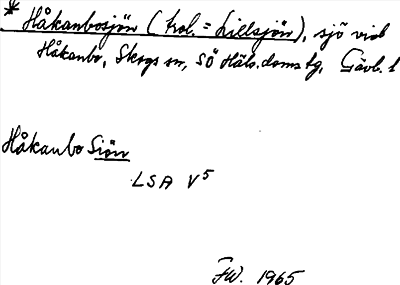 * Håkanbosjön (trol. = Lillsjön), sjö vid
Håkanbo, Skogs sn, SÖ Häls. doms tg, Gävl. l
Håkanbo Siön
LSA V5
FW. 1965